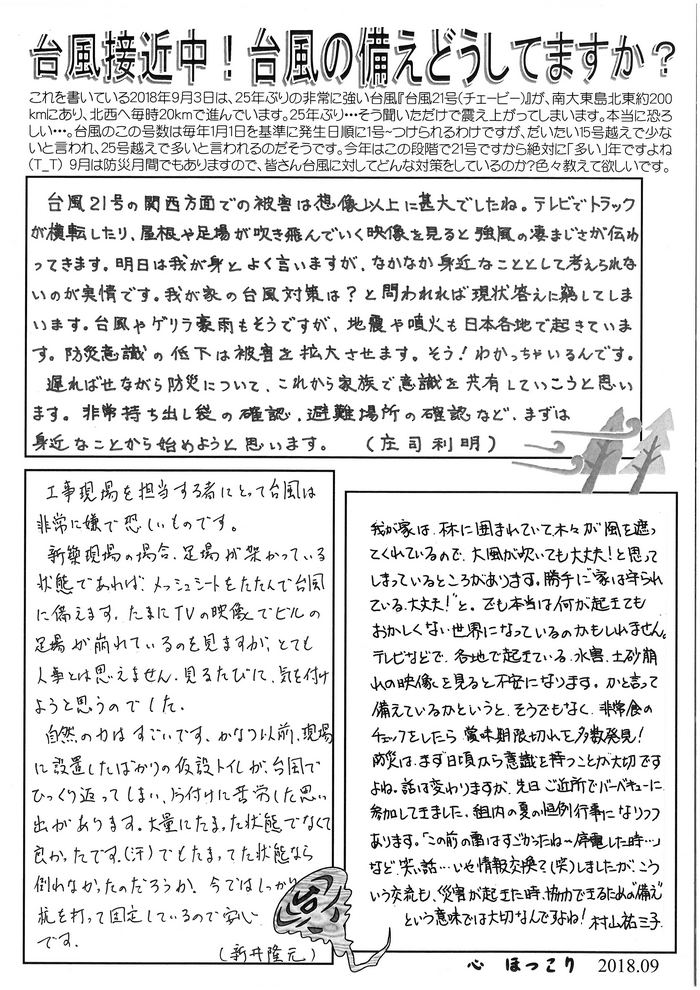 台風接近中！台風の備えどうしてますか？
これを書いている2018年9月3日は、25年ぶりの非常に強い台風『台風21号(チェービー)』が、南大東島北東約200
kmにあり、北西へ毎時20kmで進んでいます。25年ぶり･･･そう聞いただけで震え上がってしまいます。本当に恐ろ
しい･･･。台風のこの号数は毎年1月1日を基準に発生日順に1号~つけられるわけですが、だいたい15号越えで少な
いと言われ、25号越えで多いと言われるのだそうです。今年はこの段階で21号ですから絶対に「多い」年ですよね
(T_T) 9月は防災月間でもありますので、皆さん台風に対してどんな対策をしているのか?色々教えて欲しいです。
台風21号の関西方面での被害は想像以上に甚大でしたね。テレビでトラック
が横転したり、屋根や足場が吹き飛んでいく映像を見ると強風の凄まじさが伝わ
ってきます。明日は我が身とよく言いますが、なかなか身近なこととして考えられな
いのが実情です。我が家の台風対策は？と問われれば現状答えに窮してしま
います。台風やゲリラ豪雨もそうですが、地震や噴火も日本各地で起きていま
す。防災意識の低下は被害を拡大させます。そう！わかっちゃいるんです。
遅ればせながら防災について、これから家族で意識を共有していこうと思い
ます。非常持ち出し袋の確認、避難場所の確認など、まずは
身近なことから始めようと思います。（庄司利明）
工事現場を担当する者にとって台風は
非常に嫌で恐しいものです。
新築現場の場合、足場が架かっている
状態であれば、メッシュシートをたたんで台風
に備えます。たまにTVの映像でビルの
足場が崩れているのを見ますが、とても
人事とは思えません。見るたびに、気を付け
ようと思うのでした。
自然の力はすごいです、かなり以前、現場
に設置したばかりの仮設トイレが、台風で
ひっくり返ってしまい、片付けに苦労した思い
出があります。大量にたまった状態でなくて
良かったです。(汗)でもたまってた状態なら
倒れなかったのだろうか？今ではしっかり
杭を打って固定しているので安心
です。
(新井隆元)
我が家は、林に囲まれていて木々が風を遮っ
てくれているので、大風が吹いても大丈夫！と思って
しまっているところがあります。勝手に“家は守られ
ている、大丈夫！”と。でも本当は何が起きても
おかしくない世界になっているのかもしれません。
テレビなどで、各地で起きている、水害、土砂崩
れの映像を見ると不安になります。かと言って
備えているかというと、そうでもなく、非常食の
チェックをしたら賞味期限切れを多数発見！
防災は、まず日頃から意識を持つことが大切です
よね。話は変わりますが、先日ご近所でバーベキューに
参加してきました。組内の夏の恒例行事になりつつ
あります。「この前の雷はすごかったね～停電した時…」
など、笑い話…いや情報交換？(笑)しましたが、こう
いう交流も、災害が起きた時、協力できるための“備え”
という意味では大切なんですよね！村山祐三子
台
心 ほっこり 2018.09